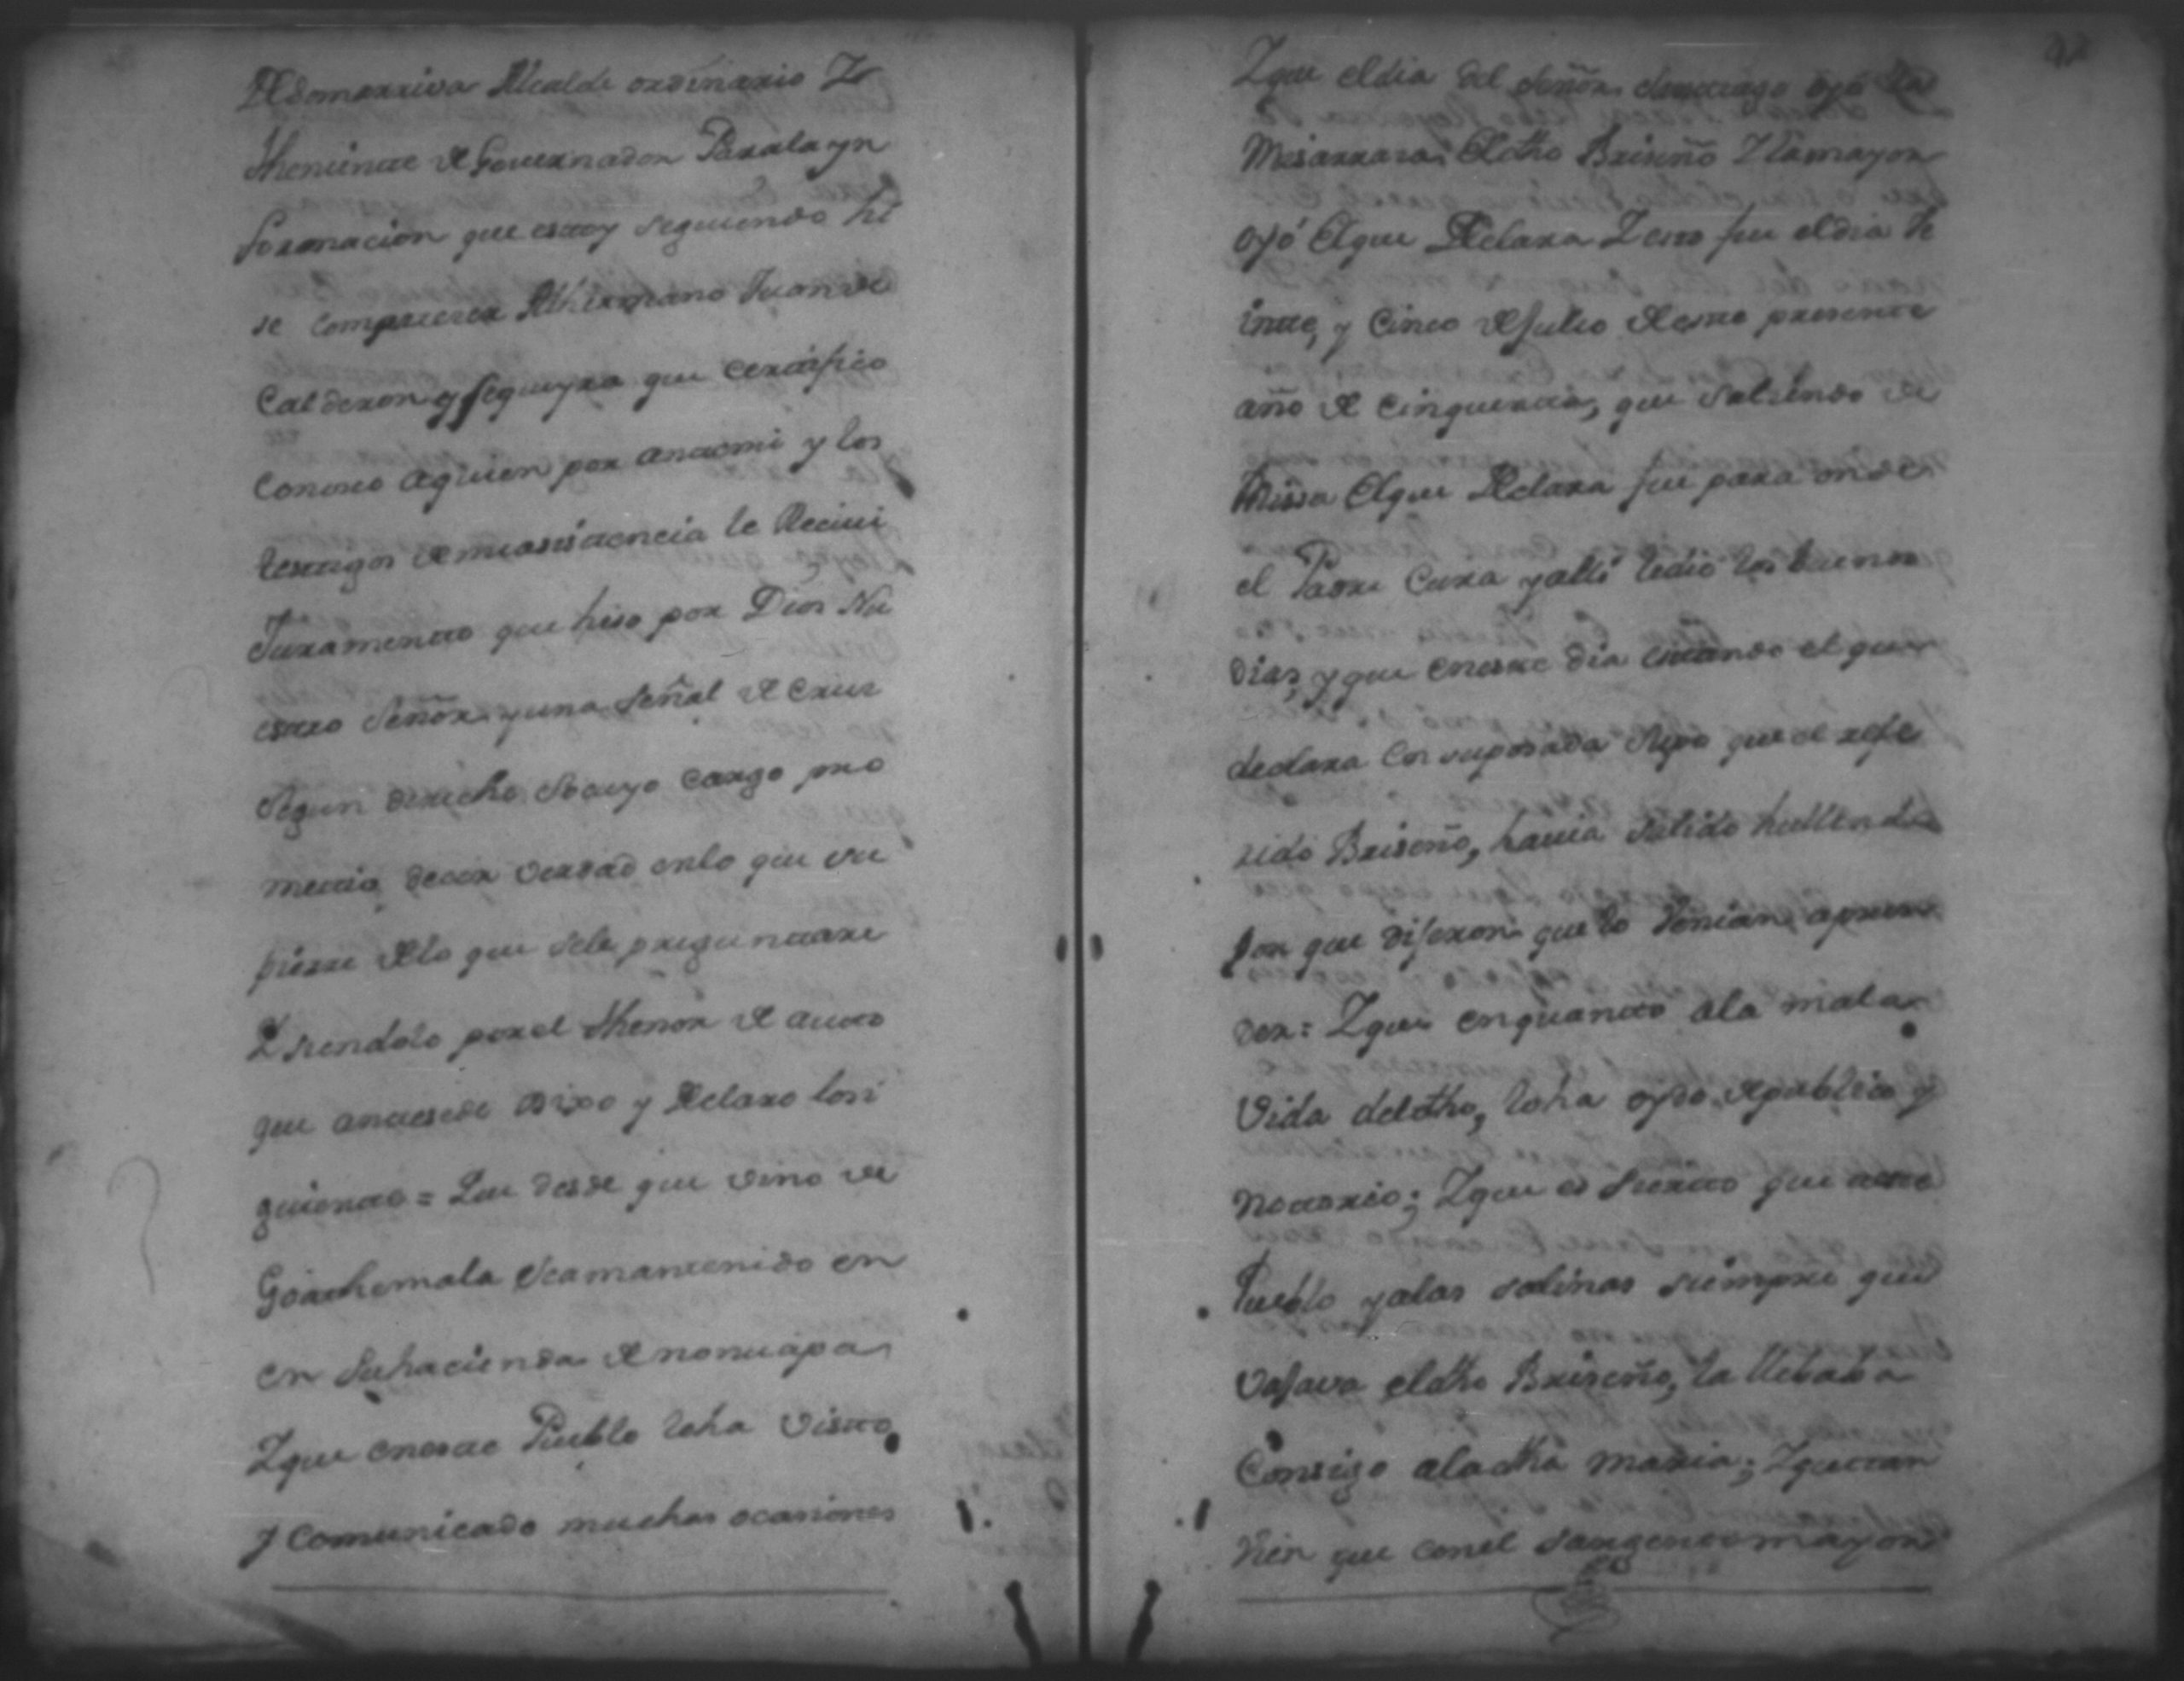 Desomarriva Alcalde ordinario Y
Theniente de Governador Para la yn
formacion que estoy seguiendo hi
se comparecer Al hermano Juan de
Calderon y sequeyra que certifico
Conosco aquien por antemi y los
testigos de mi asistencia le Reciui
Juramento que hiso por Dios Nu
estro Señor y una señal de Cruz
segun derecho so cuyo cargo pro
metio decir verdad en lo que su
piere de lo que se le preguntare
Y siendolo por el thenor de auto
que antesede Dixo y Declaro lo si
guiente = Que desde que vino de
Goathemala se a mantenido en
en su hacienda de nonuapa
Y que en este Pueblo le ha visto
y Comunicado muchas ocasiones
Y que el dia del señor santiago oyó la
Misa rrasa El dho Briseño Y la mayor
oyó El que Declara Y esto fue el dia ve
inte, y Cinco de Julio de este presente
año de Cinquenta, que saliendo de
Missa El que Declara fue para onde
el Padre Cura y alli le dio los buenos
dias, y que en este dia estando el que
declara en su posada supo que el refe
rido Briseño, havia salido hullendo
por que dijeron que lo venian apren
der = Y que en quanto a la mala
Vida del dho, lo ha oydo de publico y
notorio; Y que es sierto que a este
Pueblo y a las salinas siempre que
vajava el dho Briseño, la llebaba
Consigo a la dha maria; Y que tam
vien que con el sargento mayor